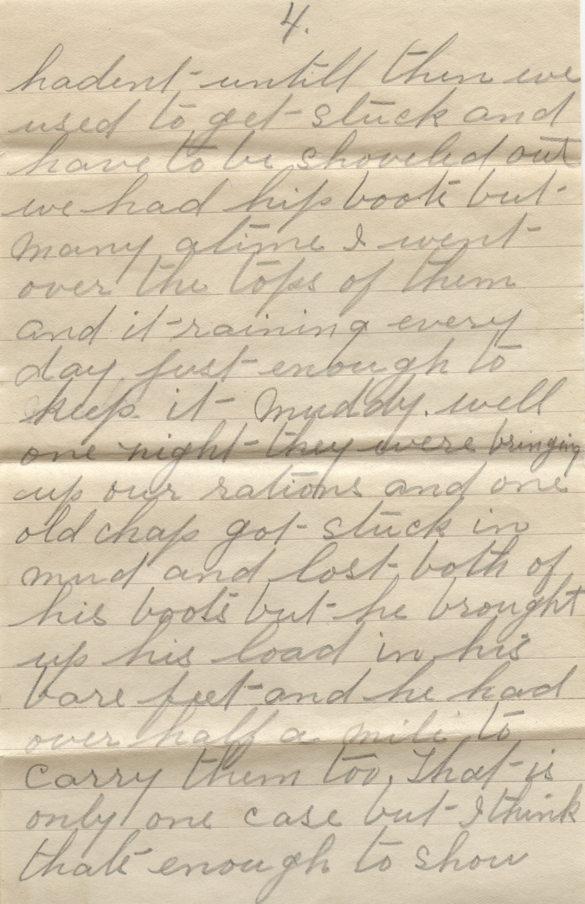 4.
hadent untill then we
used to get stuck and
have to be shoveled out
we had hip boots but
many atime I went
over the tops of them
and it raining every
day just enough to
keep it muddy. well
one night they were bringing
up our rations and one
old chap got stuck in
mud and lost both of
his boots but he brought
up his load in his
bare feet and he had
over half a mile to
carry them too. That is
only one case but I think
thats enough to show